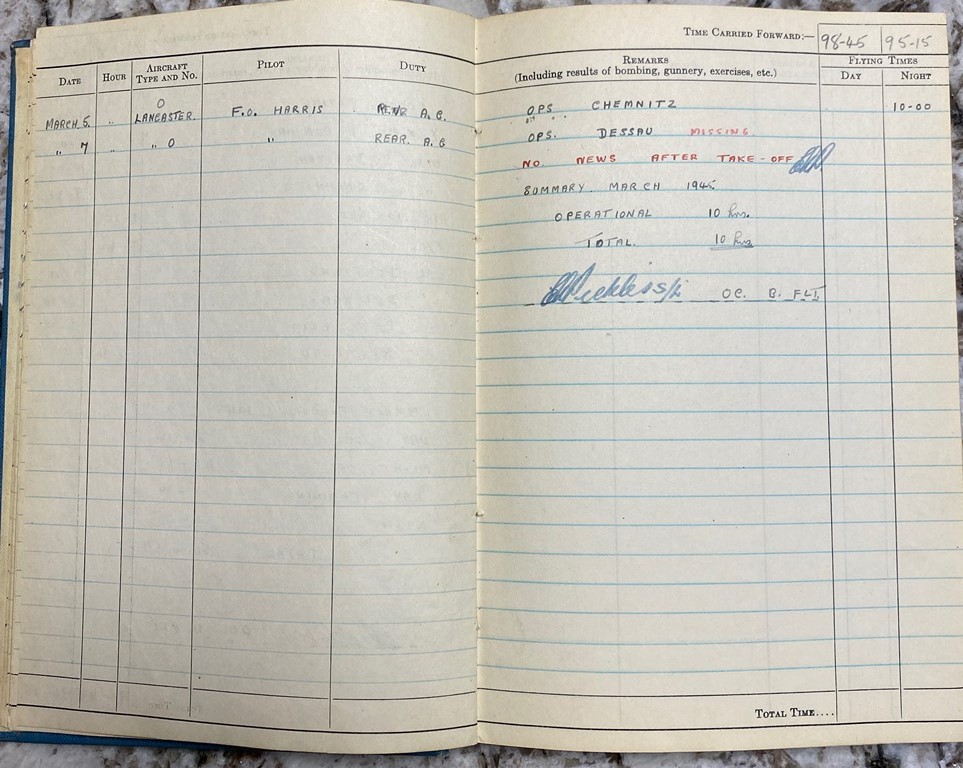 TIME CARRIED FORWARD:— 98-45 95-15
DATE HOUR AIRCRAFT TYPE AND NO. PILOT DUTY
REMARKS
(Including results of bombing, gunnery, exercises, etc.)
FLYING TIMES
DAY NIGHT
MARCH 5. " O LANCASTER. F.O. HARRIS REAR A.G. OPS CHEMNITZ 10-00
" 7 " " O " REAR. A.G OPS. DESSAU MISSING.
NO NEWS AFTER TAKE-OFF
SUMMARY. MARCH 1945.
OPERATIONAL 10 hrs.
TOTAL. 10 hrs
OC. B. FLT.
TOTAL TIME....